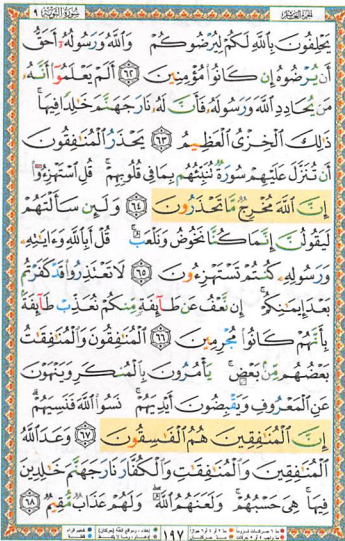 الجزء العاشر
سورة التوبة ٩
يَحۡلِفُونَ بِٱللَّهِ لَكُمۡ لِيُرۡضُوكُمۡ وَٱللَّهُ وَرَسُولُهُۥٓ أَحَقُّ
أَن يُرۡضُوهُ إِن كَانُواْ مُؤۡمِنِينَ ٦٢ أَلَمۡ يَعۡلَمُوٓاْ أَنَّهُۥ
مَن يُحَادِدِ ٱللَّهَ وَرَسُولَهُۥ فَأَنَّ لَهُۥ نَارَ جَهَنَّمَ خَٰلِدٗا فِيهَاۚ
ذَٰلِكَ ٱلۡخِزۡيُ ٱلۡعَظِيمُ ٦٣ يَحۡذَرُ ٱلۡمُنَٰفِقُونَ
أَن تُنَزَّلَ عَلَيۡهِمۡ سُورَةٞ تُنَبِّئُهُم بِمَا فِي قُلُوبِهِمۡۚ قُلِ ٱسۡتَهۡزِءُوٓاْ
إِنَّ ٱللَّهَ مُخۡرِجٞ مَّا تَحۡذَرُونَ ٦٤ وَلَئِن سَأَلۡتَهُمۡ
لَيَقُولُنَّ إِنَّمَا كُنَّا نَخُوضُ وَنَلۡعَبُۚ قُلۡ أَبِٱللَّهِ وَءَايَٰتِهِۦ
وَرَسُولِهِۦ كُنتُمۡ تَسۡتَهۡزِءُونَ ٦٥ لَا تَعۡتَذِرُواْ قَدۡ كَفَرۡتُم
بَعۡدَ إِيمَٰنِكُمۡۚ إِن نَّعۡفُ عَن طَآئِفَةٖ مِّنكُمۡ نُعَذِّبۡ طَآئِفَةَۢ
بِأَنَّهُمۡ كَانُواْ مُجۡرِمِينَ ٦٦ ٱلۡمُنَٰفِقُونَ وَٱلۡمُنَٰفِقَٰتُ
بَعۡضُهُم مِّنۢ بَعۡضٖۚ يَأۡمُرُونَ بِٱلۡمُنكَرِ وَيَنۡهَوۡنَ
عَنِ ٱلۡمَعۡرُوفِ وَيَقۡبِضُونَ أَيۡدِيَهُمۡۚ نَسُواْ ٱللَّهَ فَنَسِيَهُمۡۚ
إِنَّ ٱلۡمُنَٰفِقِينَ هُمُ ٱلۡفَٰسِقُونَ ٦٧ وَعَدَ ٱللَّهُ
ٱلۡمُنَٰفِقِينَ وَٱلۡمُنَٰفِقَٰتِ وَٱلۡكُفَّارَ نَارَ جَهَنَّمَ خَٰلِدِينَ
فِيهَاۚ هِيَ حَسۡبُهُمۡۚ وَلَعَنَهُمُ ٱللَّهُۖ وَلَهُمۡ عَذَابٞ مُّقِيمٞ ٦٨
١٩٧